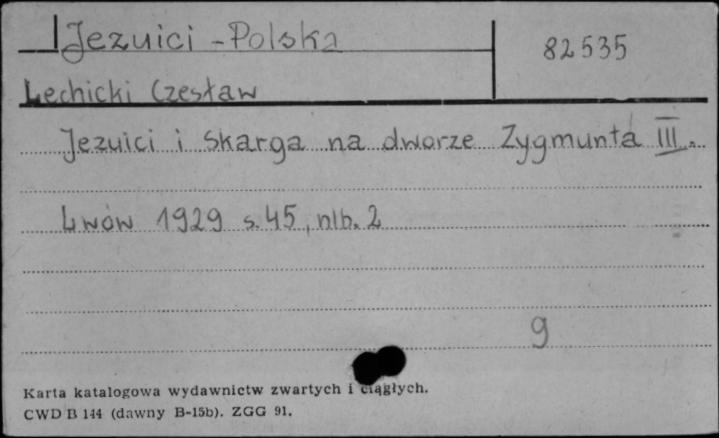 Jezuici - Polska
82535
Lechicki Czesław
Jezuici i Skarga na dworze Zygmunta III.
Lwów 1929 s. 45, nlb. 2
g
Karta katalogowa wydawnictw zwartych i ciągłych.
CWD B 144 (dawny B-15b). ZGG 91.